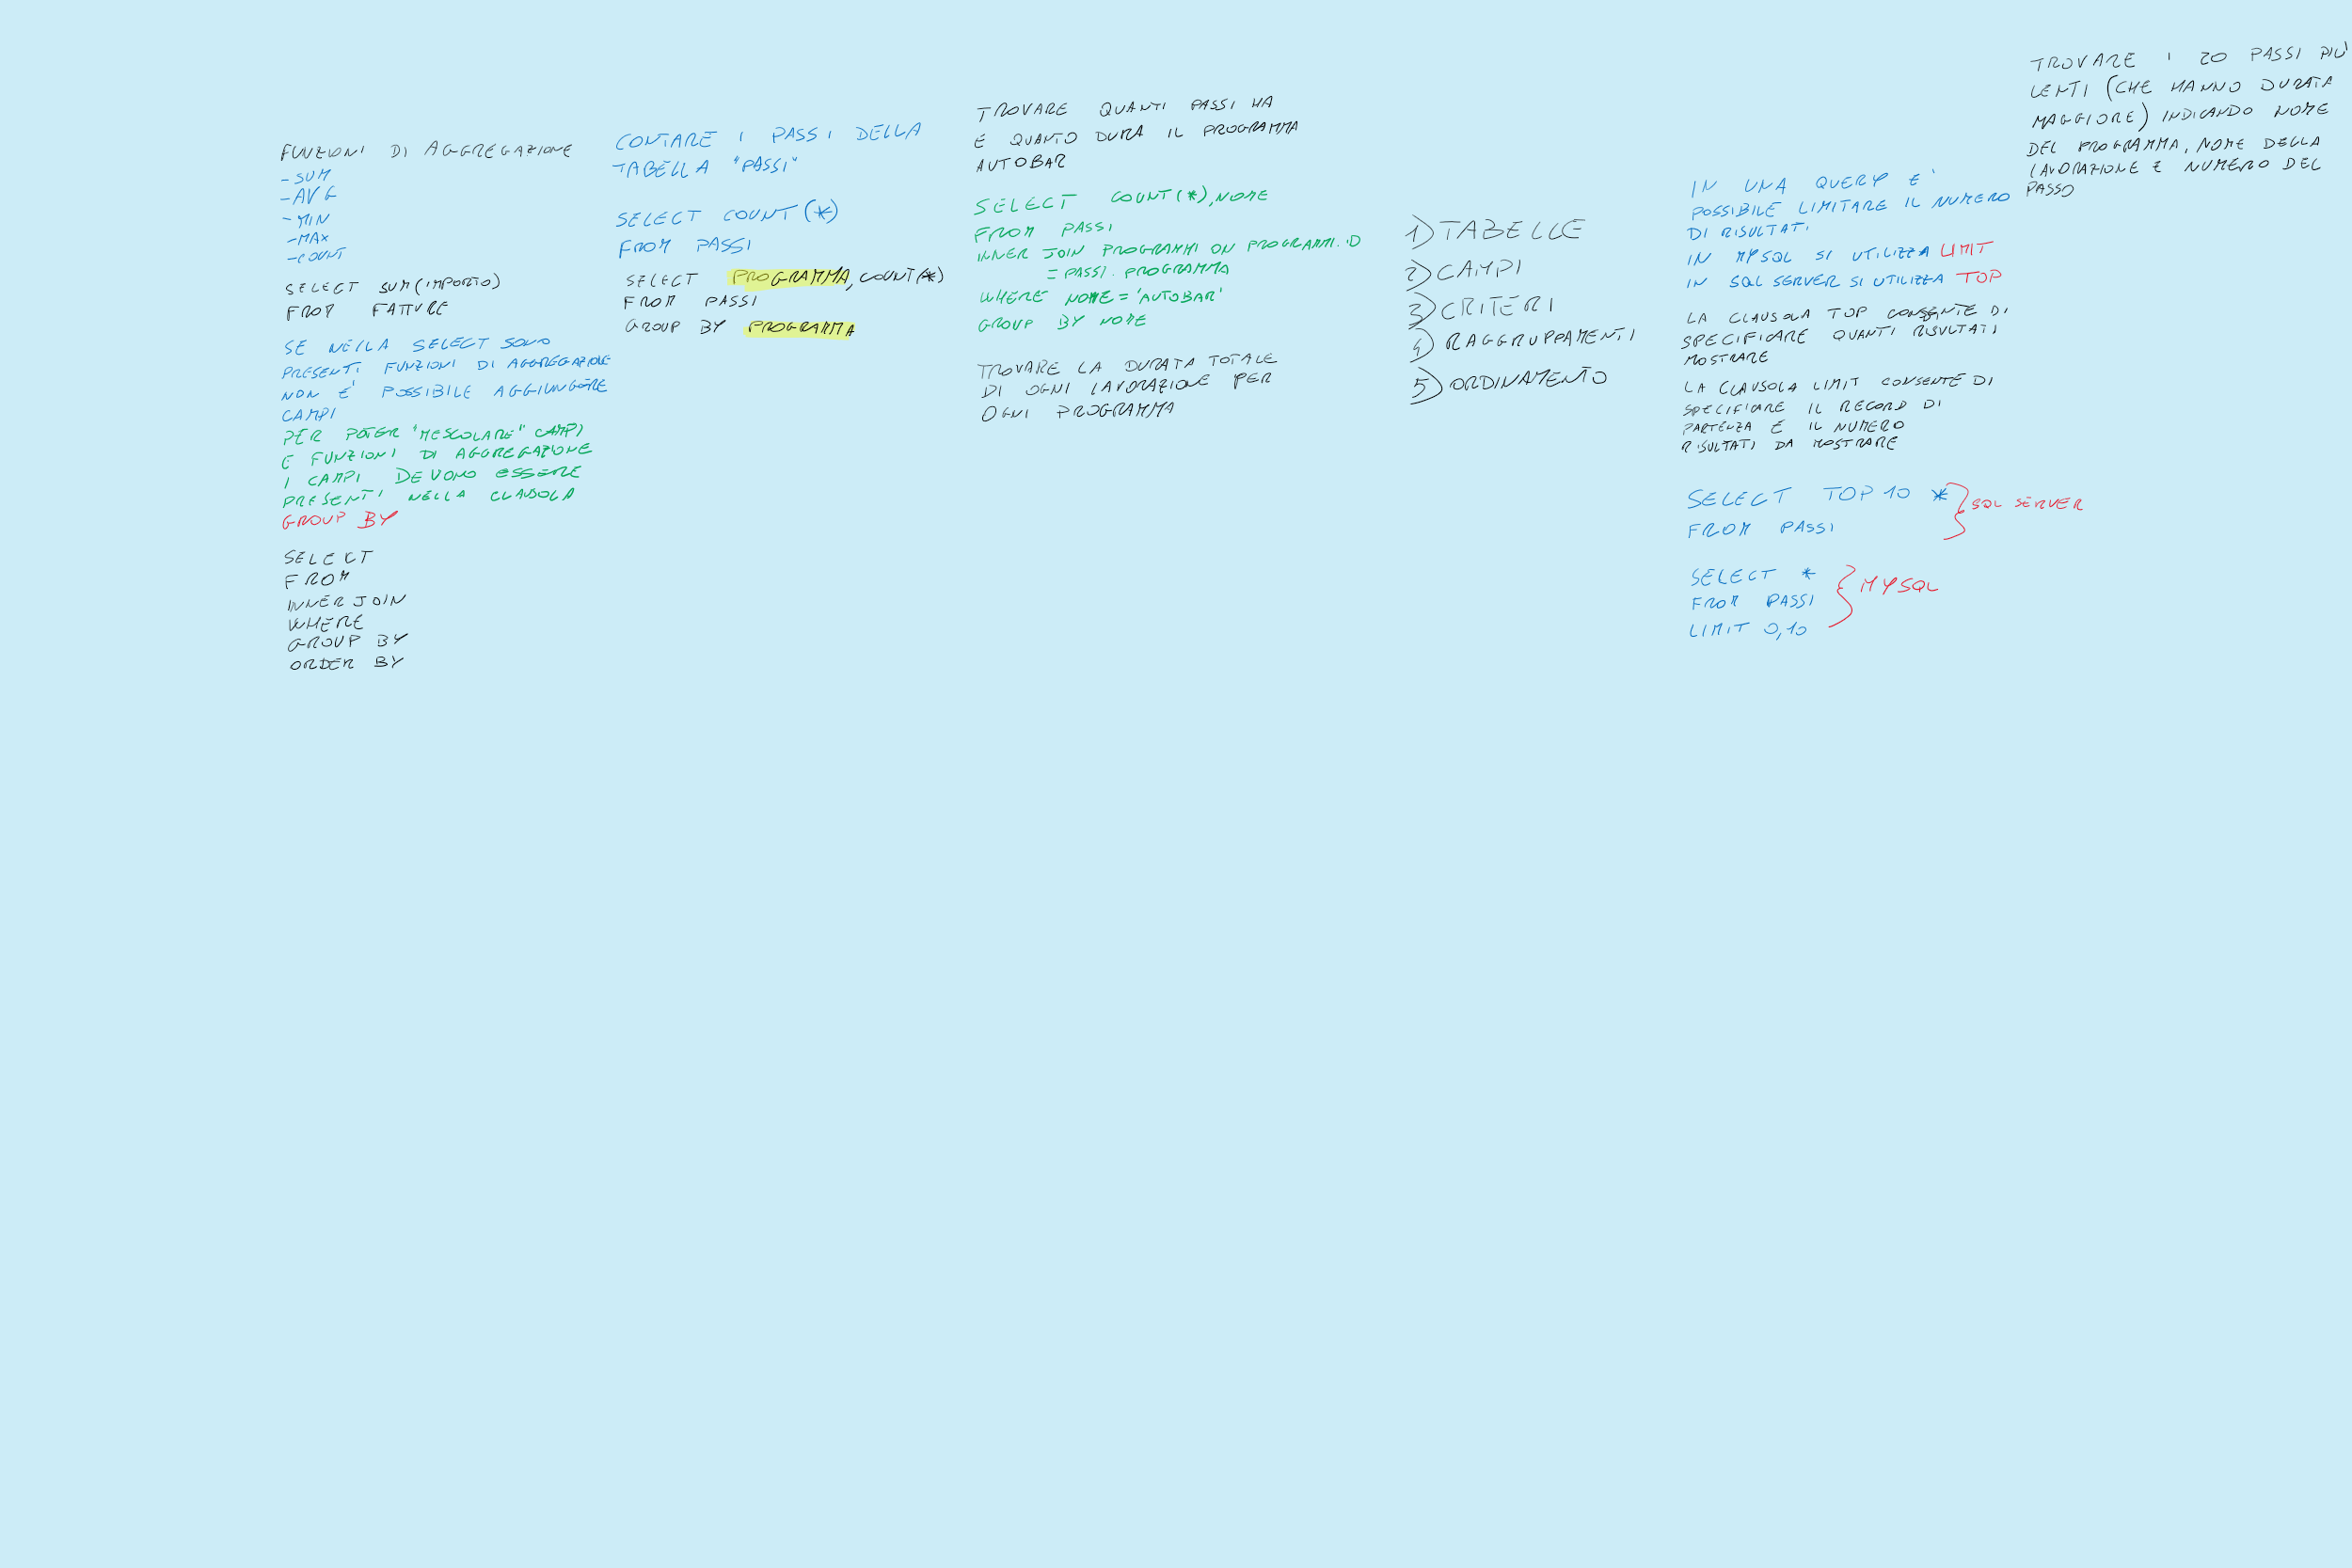 FUNZIONI DI AGGREGAZIONE
-SUM
-AVG
-MIN
-MAX
-COUNT
SELECT SUM(IMPORTO)
FROM FATTURE
SE NELLA SELECT SONO
PRESENTI FUNZIONI DI AGGREGAZIONE
NON E' POSSIBILE AGGIUNGERE
CAMPI
PER POTER "MESCOLARE" CAMPI
E FUNZIONI DI AGGREGAZIONE
I CAMPI DEVONO ESSERE
PRESENTI NELLA CLAUSOLA
GROUP BY
SELECT
FROM
INNER JOIN
WHERE
GROUP BY
ORDER BY
CONTARE I PASSI DELLA
TABELLA "PASSI"
SELECT COUNT(*)
FROM PASSI
SELECT PROGRAMMA, COUNT(*)
FROM PASSI
GROUP BY PROGRAMMA
TROVARE QUANTI PASSI HA
E QUANTO DURA IL PROGRAMMA
AUTOBAR
SELECT COUNT(*), NOME
FROM PASSI
INNER JOIN PROGRAMMI ON PROGRAMMI.ID
= PASSI.PROGRAMMA
WHERE NOME='AUTOBAR'
GROUP BY NOME
TROVARE LA DURATA TOTALE
DI OGNI LAVORAZIONE PER
OGNI PROGRAMMA
1) TABELLE
2) CAMPI
3) CRITERI
4) RAGGRUPPAMENTI
5) ORDINAMENTO
IN UNA QUERY E'
POSSIBILE LIMITARE IL NUMERO
DI RISULTATI
IN MYSQL SI UTILIZZA LIMIT
IN SQL SERVER SI UTILIZZA TOP
LA CLAUSOLA TOP CONSENTE DI
SPECIFICARE QUANTI RISULTATI
MOSTRARE
LA CLAUSOLA LIMIT CONSENTE DI
SPECIFICARE IL RECORD DI
PARTENZA E IL NUMERO
RISULTATI DA MOSTRARE
SELECT TOP 10 *
FROM PASSI
SQL SERVER
SELECT *
FROM PASSI
LIMIT 0,10
MYSQL
TROVARE I 20 PASSI PIU'
LENTI (CHE HANNO DURATA
MAGGIORE) INDICANDO NOME
DEL PROGRAMMA, NOME DELLA
LAVORAZIONE E NUMERO DEL
PASSO